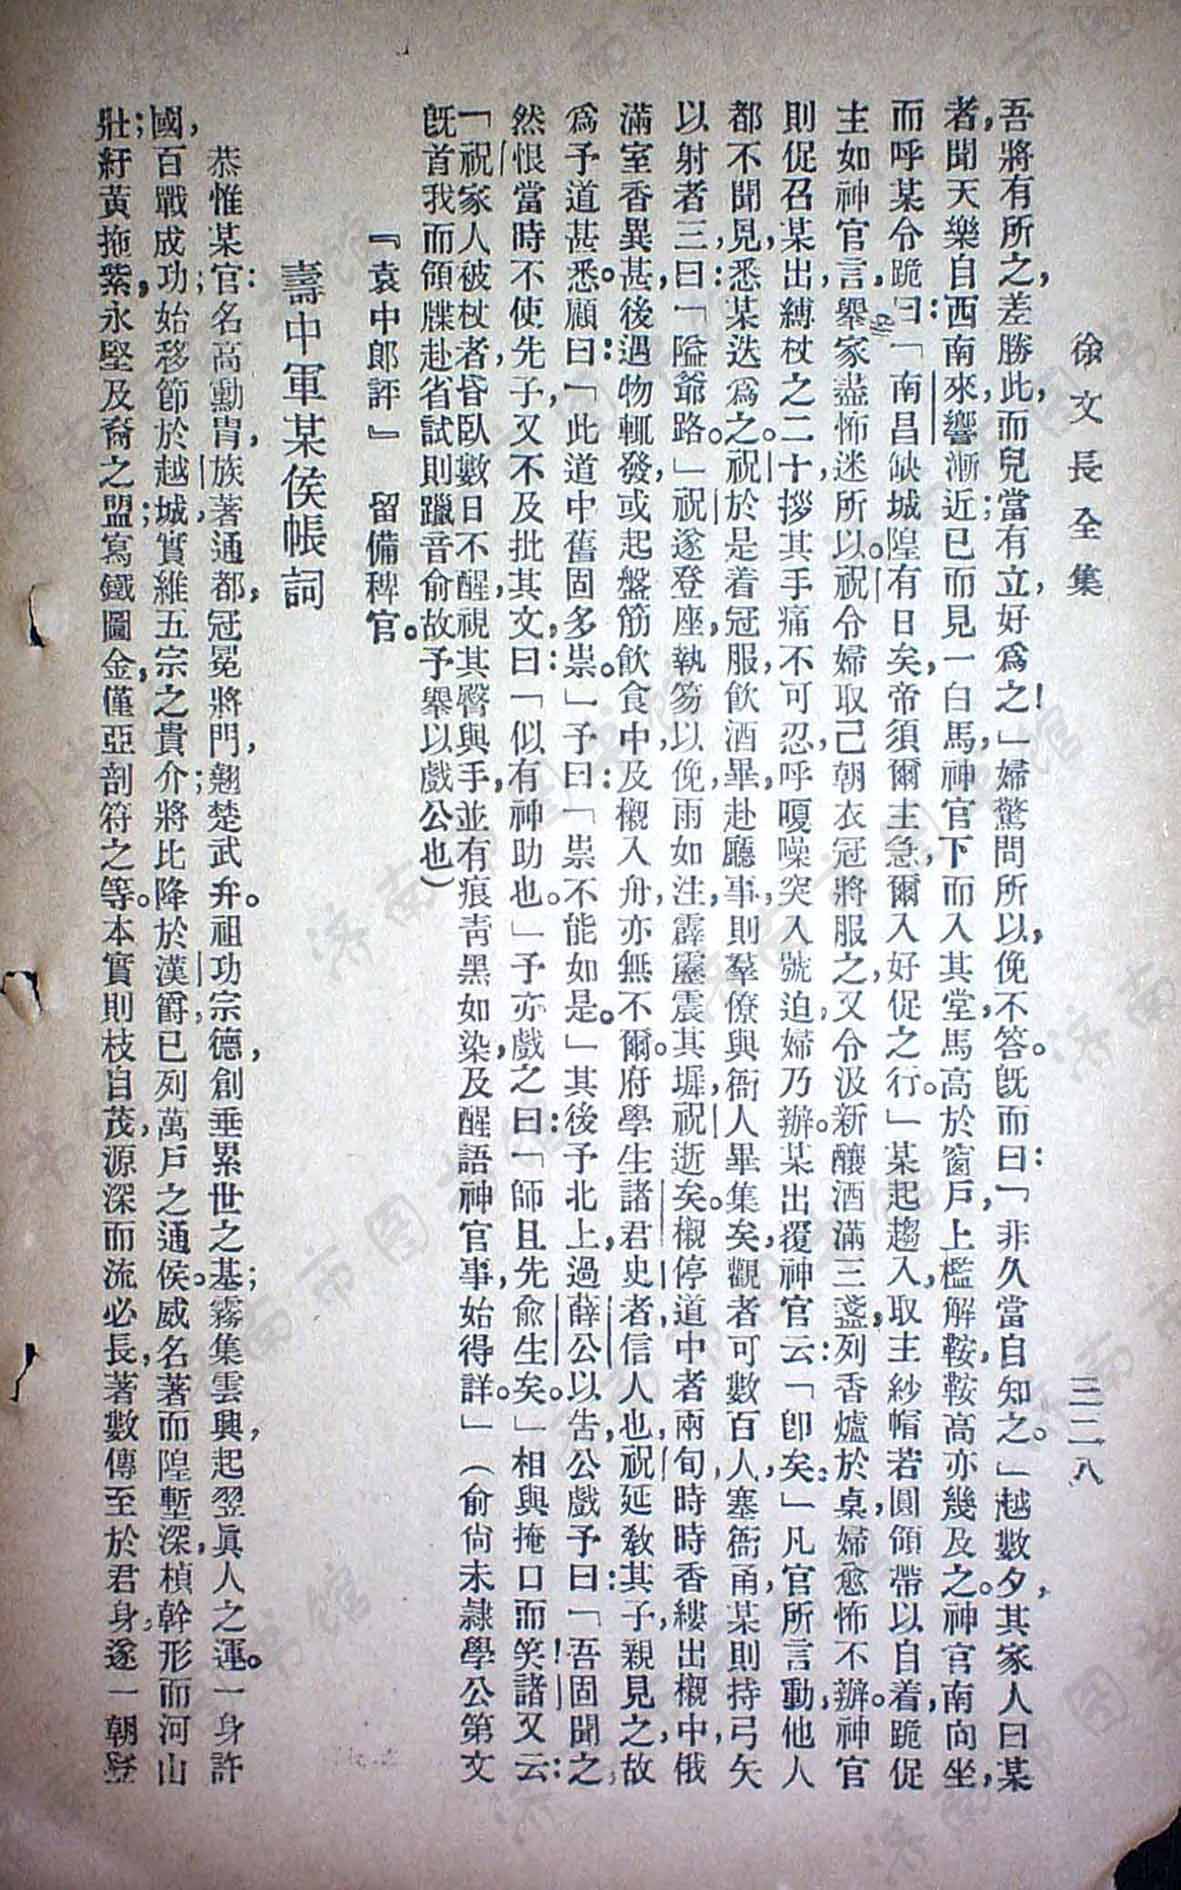 徐文長全集
三二八
吾將有所之，差勝此，而兒當有立，好爲之！」婦驚問所以，俛不答。旣而曰：「非久當自知之。」越數夕，其家人曰某
者，聞天樂自西南來，響漸近，已而見一白馬，神官下而入其堂，馬高於窗戶上檻，解鞍，鞍高亦幾及之。神官南向坐，
而呼某令跪，曰：「南昌缺城隍有日矣，帝須爾主急，爾入，好促之行。」某起趨入，取主紗帽若圓領帶以自着，跪促
主如神官言，舉家盡怖迷所以。祝令婦取己朝衣冠將服之，又令汲新釀酒滿三盞，列香爐於桌，婦愈怖不辦。神官
則促召某出縛杖之二十，拶其手，痛不可忍，呼嗄噪突入，號迫婦乃辦。某出覆神官云：「卽矣。」凡官所言動，他人
都不聞見，悉某迭爲之。祝於是着冠服，飲酒畢，赴廳事，則羣僚與衙人畢集矣，觀者可數百人，塞衙甬，某則持弓矢
以射者三，曰：「隘爺路。」祝遂登座，執笏以俛，雨如注，霹靂震其墀，祝逝矣。櫬停道中者兩旬，時時香縷出櫬中，俄
滿室香異甚，後遇物輒發，或起盤筯飲食中，及櫬入舟，亦無不爾。府學生諸君史者，信人也，祝延敎其子，親見之，故
爲予道甚悉。顧曰：「此道中舊固多祟。」予曰：「祟不能如是。」其後予北上，過薛公以告，公戲予曰：「吾固聞之，
然恨當時不使先子，又不及批其文，曰：「似有神助也。」予亦戲之曰：「師且先俞生矣。」相與掩口而笑！諸又云：
「祝家人被杖者，昏臥數日不醒，視其臀與手，並有痕靑黑如染，及醒語神官事，始得詳。」（俞尙未隷學公第文
旣首我而領牒赴省試則躐音俞故予舉以戲公也）
『袁中郎評』　留備稗官。
壽中軍某侯帳詞
恭惟某官：名高勳冑，族著通都，冠冕將門，翹楚武弁。祖功宗德，創垂累世之基；霧集雲興，起翌眞人之運。一身許
國，百戰成功，始移節於越城，實維五宗之貴介，將比降於漢爵，已列萬戶之通侯。威名著而隍塹深，楨幹形而河山
壯；紆黃拖紫，永堅及裔之盟；寫鐵圖金，僅亞剖符之等。本實則枝自茂，源深而流必長，著數傳至於君身，遂一朝登